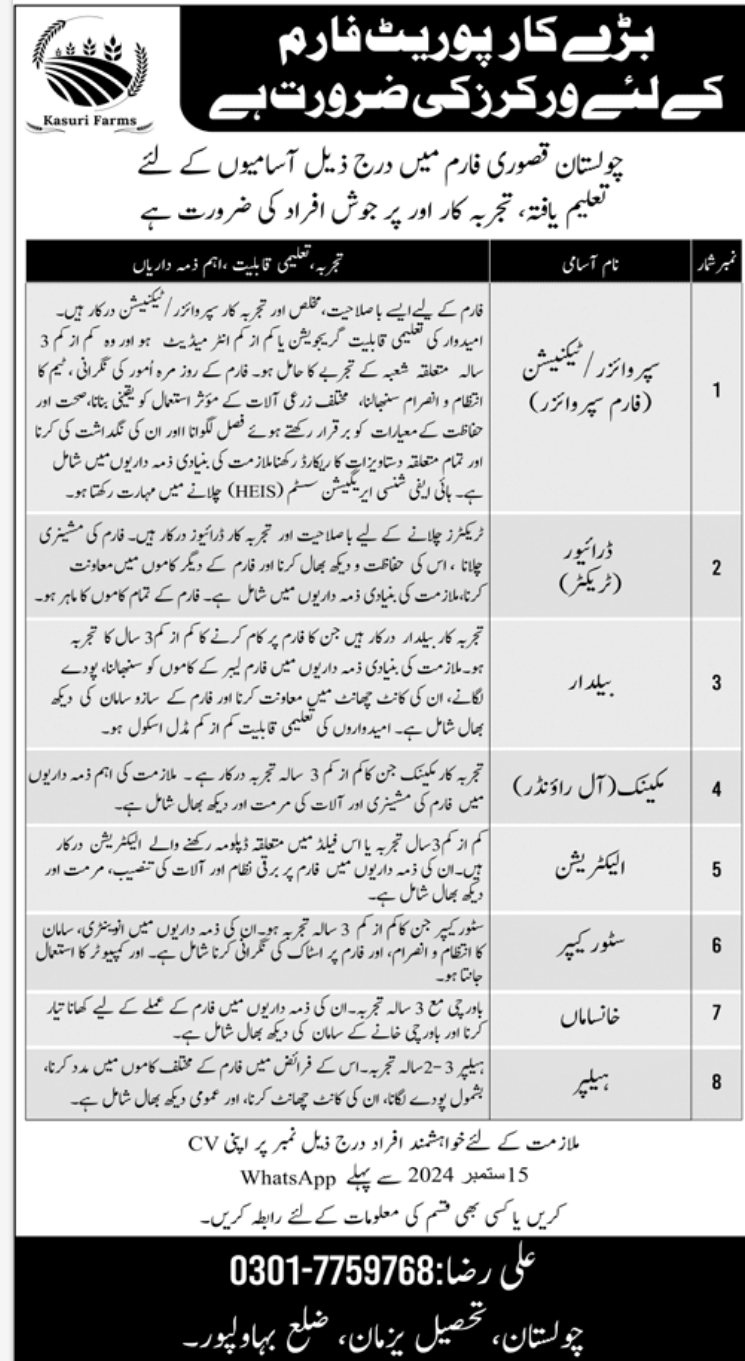 Kasuri Farms
بڑے کارپوریٹ فارم
کے لئے ورکرز کی ضرورت ہے
چولستان قصوری فارم میں درج ذیل آسامیوں کے لئے
تعلیم یافتہ، تجربہ کار اور پر جوش افراد کی ضرورت ہے
نمبر شمار
نام آسامی
تجربہ، تعلیمی قابلیت، اہم ذمہ داریاں
1
سپروائزر/ٹیکنیشن
(فارم سپروائزر)
فارم کے لیے ایسے باصلاحیت، مخلص اور تجربہ کار سپروائزر/ٹیکنیشن درکار ہیں۔
امیدوار کی تعلیمی قابلیت گریجویشن یا کم از کم انٹر میڈیٹ ہو اور وہ کم از کم 3
سالہ متعلقہ شعبہ کے تجربے کا حامل ہو۔ فارم کے روز مرہ اُمور کی نگرانی، ٹیم کا
انتظام و انصرام سنبھالنا، مختلف زرعی آلات کے مؤثر استعمال کو یقینی بنانا، صحت اور
حفاظت کے معیارات کو برقرار رکھتے ہوئے فصل لگوانا ااور ان کی نگداشت کی کرنا
اور تمام متعلقہ دستاویزات کا ریکارڈ رکھنا ملازمت کی بنیادی ذمہ داریوں میں شامل
ہے۔ ہائی ایفی شنسی ایریگیشن سسٹم (HEIS) چلانے میں مہارت رکھتا ہو۔
2
ڈرائیور
(ٹریکٹر)
ٹریکٹرز چلانے کے لیے باصلاحیت اور تجربہ کار ڈرائیوز درکار ہیں۔ فارم کی مشینری
چلانا، اس کی حفاظت و دیکھ بھال کرنا اور فارم کے دیگر کاموں میں معاونت
کرنا، ملازمت کی بنیادی ذمہ داریوں میں شامل ہے۔ فارم کے تمام کاموں کا ماہر ہو۔
3
بیلدار
تجربہ کار بیلدار درکار ہیں جن کا فارم پر کام کرنے کا کم از کم 3 سال کا تجربہ
ہو۔ ملازمت کی بنیادی ذمہ داریوں میں فارم لیبر کے کاموں کو سنبھالنا، پودے
لگانے، ان کی کانٹ چھانٹ میں معاونت کرنا اور فارم کے سازو سامان کی دیکھ
بھال شامل ہے۔ امیدواروں کی تعلیمی قابلیت کم از کم مڈل اسکول ہو۔
4
مکینک (آل راؤنڈر)
تجربہ کار مکینک جن کا کم از کم 3 سالہ تجربہ درکار ہے۔ ملازمت کی اہم ذمہ داریوں
میں فارم کی مشینری اور آلات کی مرمت اور دیکھ بھال شامل ہے۔
5
الیکٹریشن
کم از کم 3 سال تجربہ یا اس فیلڈ میں متعلقہ ڈپلومہ رکھنے والے الیکٹریشن درکار
ہیں۔ ان کی ذمہ داریوں میں فارم پر برقی نظام اور آلات کی تنصیب، مرمت اور
دیکھ بھال شامل ہے۔
6
سٹور کیپر
سٹور کیپر جن کا کم از کم 3 سالہ تجربہ ہو۔ ان کی ذمہ داریوں میں انوینٹری، سامان
کا انتظام و انصرام، اور فارم پر اسٹاک کی نگرانی کرنا شامل ہے۔ اور کمپیوٹر کا استعمال
جانتا ہو۔
7
خانساماں
باورچی مع 3 سالہ تجربہ۔ ان کی ذمہ داریوں میں فارم کے عملے کے لیے کھانا تیار
کرنا اور باورچی خانے کے سامان کی دیکھ بھال شامل ہے۔
8
ہیلپر
ہیلپر 3-2 سالہ تجربہ۔ اس کے فرائض میں فارم کے مختلف کاموں میں مدد کرنا،
بشمول پودے لگانا، ان کی کانٹ چھانٹ کرنا، اور عمومی دیکھ بھال شامل ہے۔
ملازمت کے لئے خواہشمند افراد درج ذیل نمبر پر اپنی CV
15 ستمبر 2024 سے پہلے WhatsApp
کریں یا کسی بھی قسم کی معلومات کے لئے رابطہ کریں۔
علی رضا: 0301-7759768
چولستان، تحصیل یزمان، ضلع بہاولپور۔